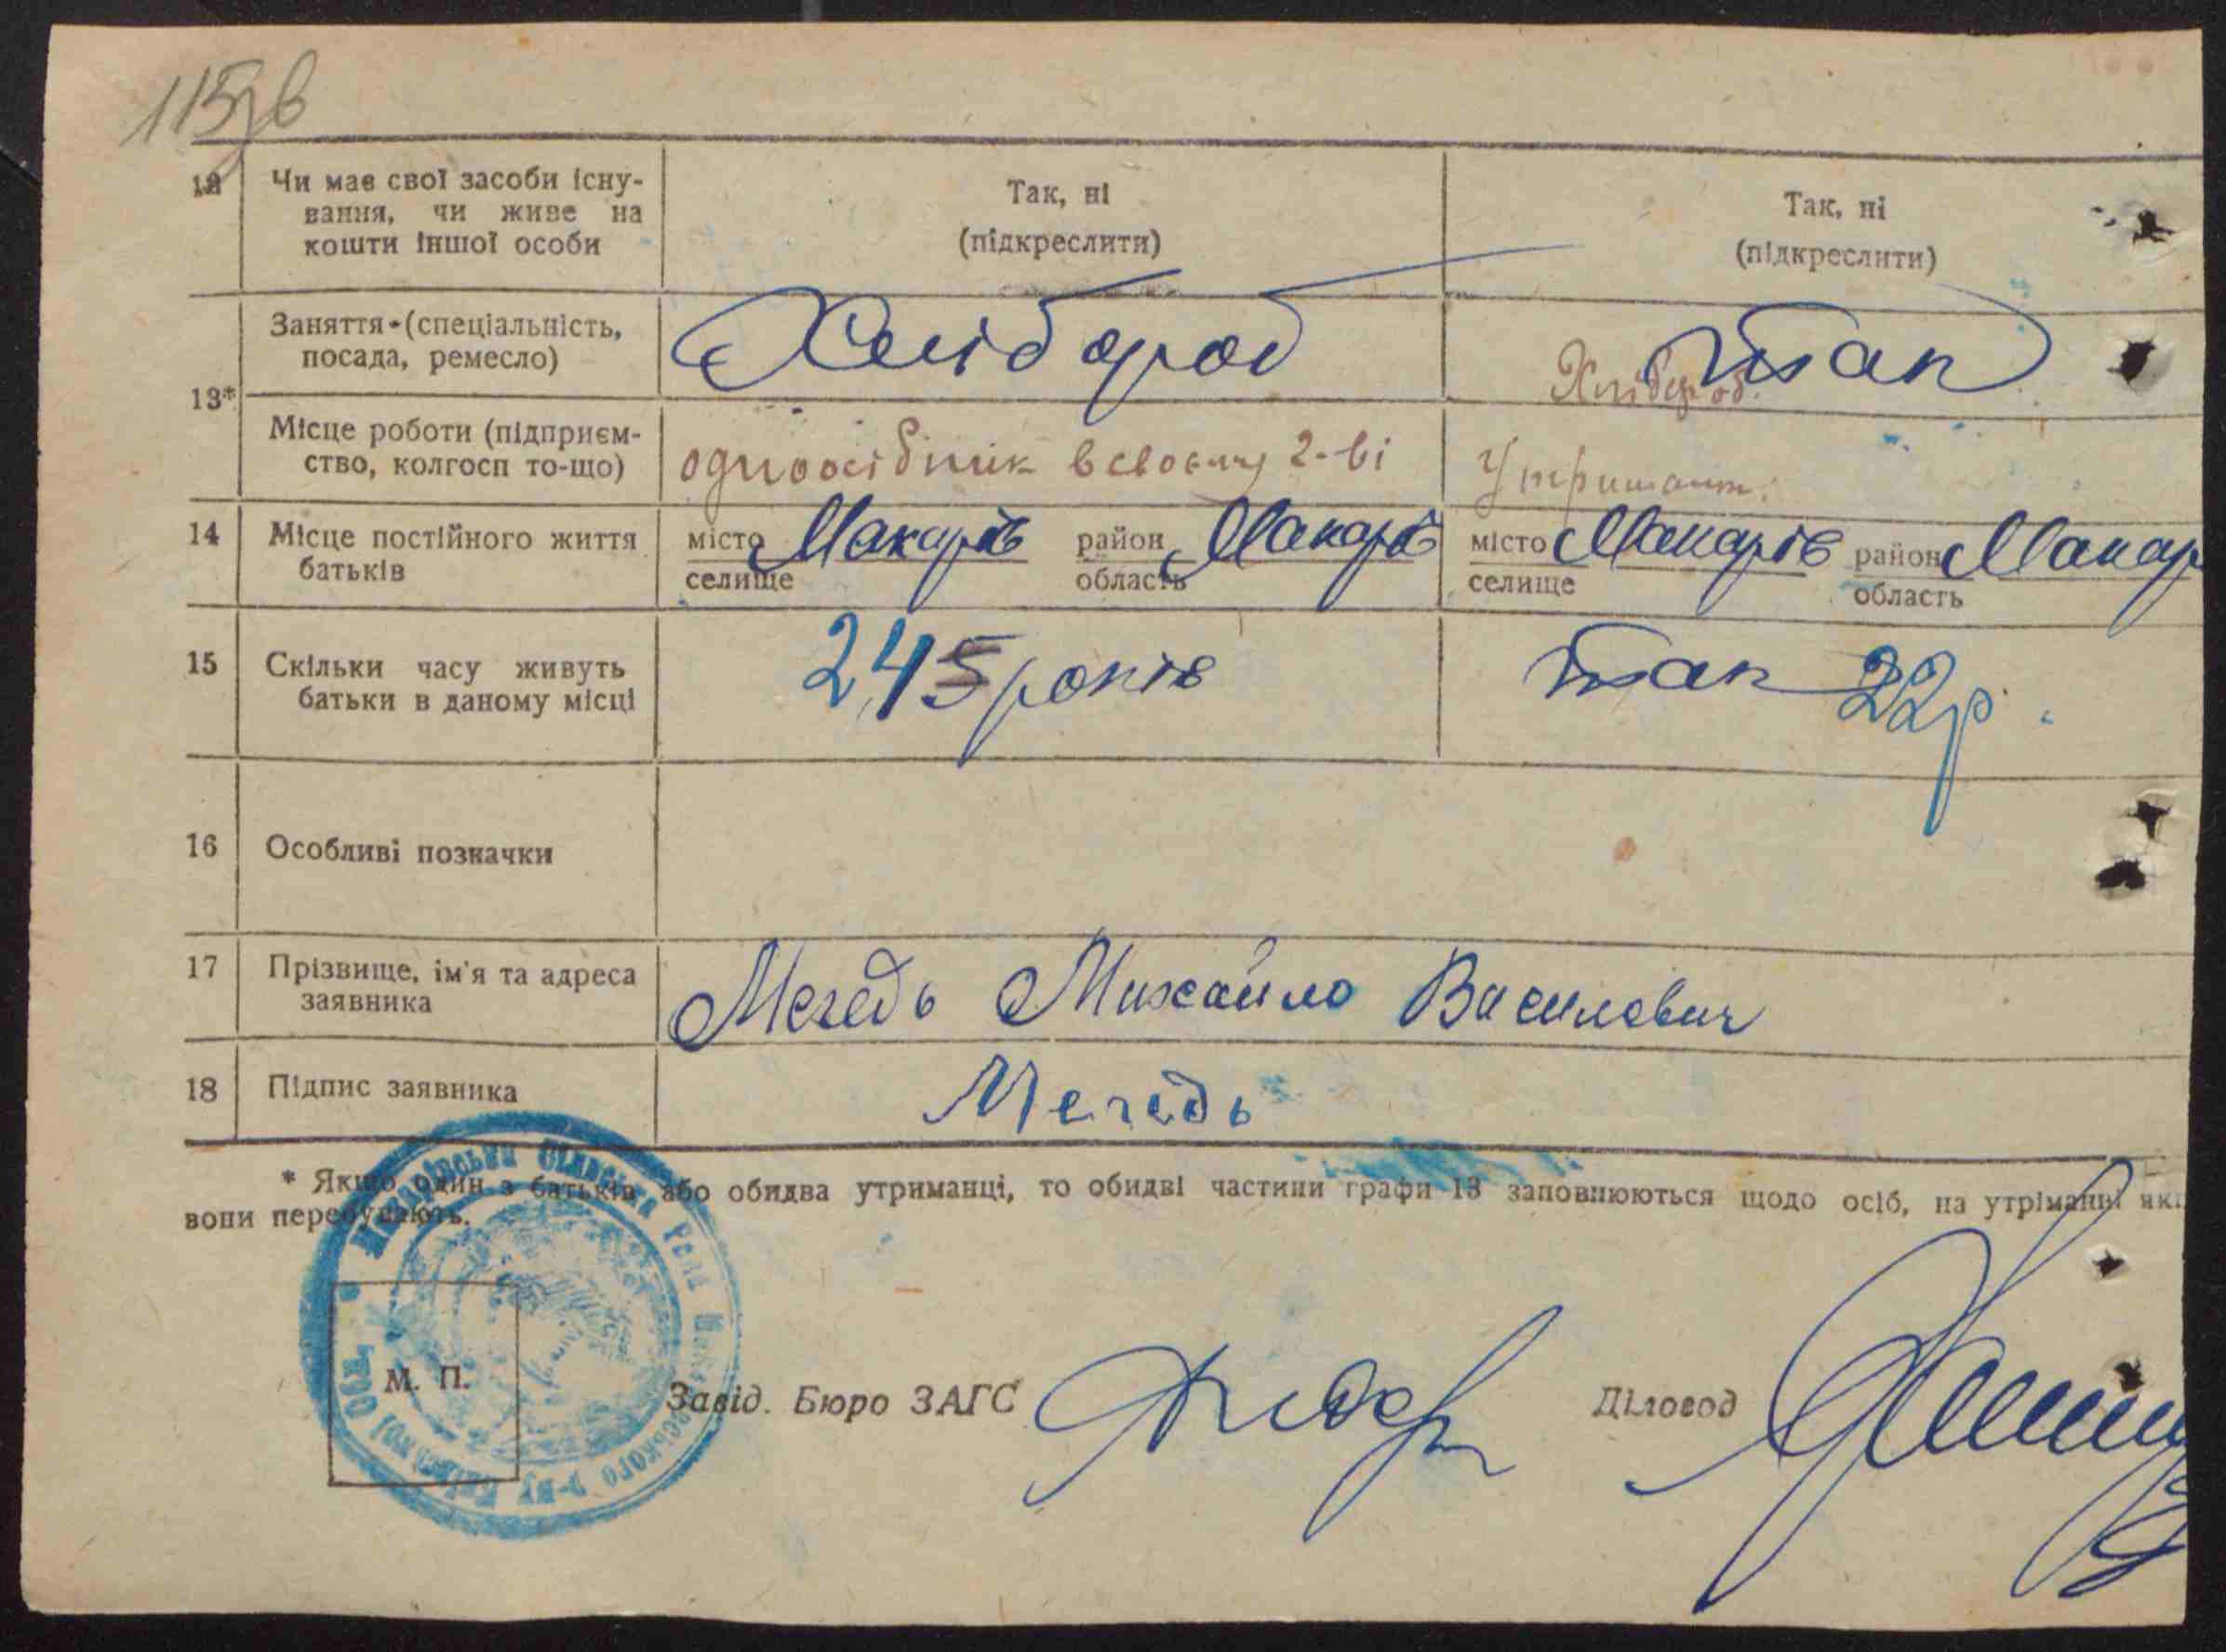 115зв
12 Чи має свої засоби існу-
вання, чи живе на
кошти іншої особи
Так, ні
(підкреслити)
Так, ні
(підкреслити)
13*
Заняття (спеціальність,
посада, ремесло)
Хлібороб
Хлібороб. так
Місце роботи (підприєм-
ство, колгосп то-що)
одноосібник в своєму г-ві
Утриман.
14 Місце постійного життя
батьків
місто Макарів район Макарів
селище область
місто Макарів район Макар
селище область
15 Скільки часу живуть
батьки в даному місці
245 років
так 22р.
16 Особливі позначки
17 Прізвище, ім'я та адреса
заявника
Мегедь Михайло Василович
18 Підпис заявника
Мегедь
* Якщо один з батьків або обидва утриманці, то обидві частини графи 13 заповнюються щодо осіб, на утріманні які
вони перебувають.
Макарівська Сільська Рада Макарівського р-ну Київської Обл.
М. П.
Завід. Бюро ЗАГС
Діловод